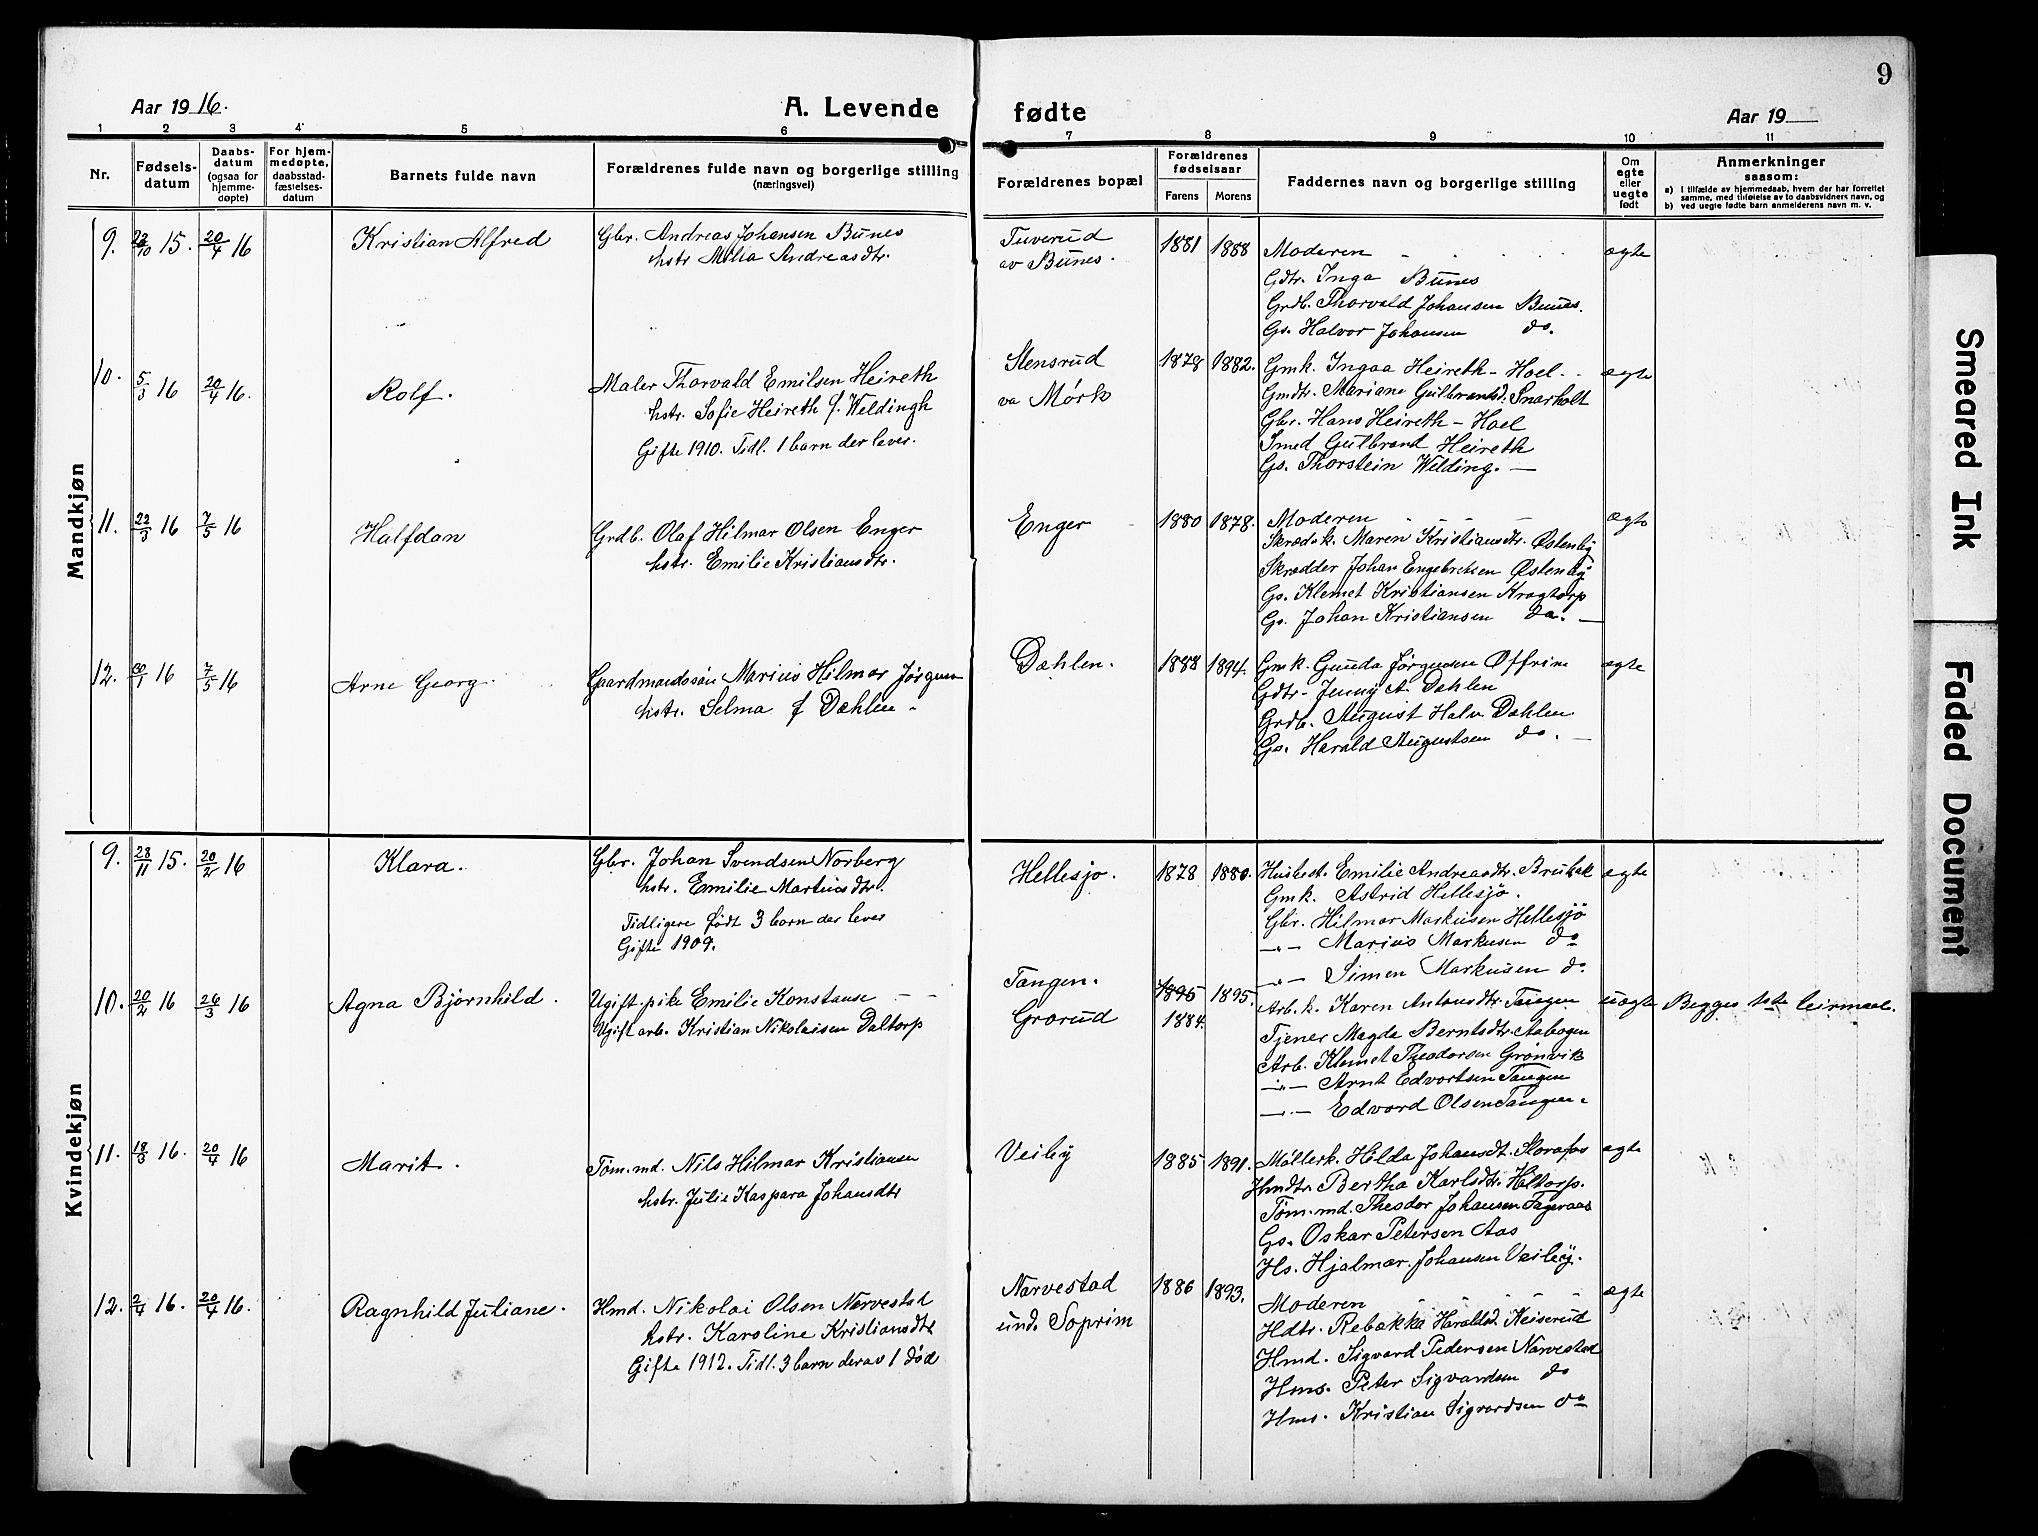 9
Aar 1916.
A. Levende fødte
Aar 19
1 2 3 4 5 6 7 8 9 10 11
Nr.
Fødsels-
datum
Daabs-
datum
(ogsaa for
hjemme-
døpte)
For hjem-
medøpte,
daabsstad-
fæstelses-
datum
Barnets fulde navn
Forældrenes fulde navn og borgerlige stilling
(næringsvei)
Forældrenes bopæl
Forældrenes
fødselsaar
Farens Morens
Faddernes navn og borgerlige stilling
Om
egte
eller
uegte
født
Anmerkninger
saasom:
a) I tilfælde av hjemmedaab, hvem der har forrettet
samme, med tilføielse av to daabsvidners navn, og
b) ved uegte fødte barn anmelderens navn m. v.
Mandkjøn
9. 15. 20/4 16
Kristian Alfred
Gbr. Andreas Johansen Bunes
hstr. Milla Andreasdtr.
Tuverud
av Bunes.
1881 1888
Moderen
Gdtr. Inga Bunes
Grdb. Thorvald Johansen Bunes.
Gs. Halvor Johansen do.
ægte
10. 5/3 16 20/4 16.
Rolf.
Maler Thorvald Emilsen Heireth
hstr. Sofie Heireth f. Weldingh
Gifte 1910. Tidl. 1 barn der lever.
Stensrud
va Mørk
1878 1882.
Gmk. Ingaa Heireth - Hoel.
Gmdtr. Mariane Gulbrandsd. Snarholt
Gbr. Hans Heireth - Hoel
Smed Gulbrand Heireth
Gs. Thorstein Welding. —
ægte
11. 22/3 16 7/5 16
Halfdan
Grdb. Olaf Hilmar Olsen Enger
hstr. Emilie Kristiansdtr.
Enger
1880 1878.
Moderen
Skrædk. Maren Kristiansdtr. Østenby
Skrædder Johan Engebretsen Østenby
Gs. Klemet Kristiansen Kragtorp
Gs. Johan Kristiansen do. —
ægte
12. 16 7/5 16
Arne Georg.
Gaardmandssøn Marius Hilmar Jørgensen
hstr. Selma f Dæhlen
Dæhlen.
1888 1894.
Gmk. Gunda Jørgensen Offrim
Gdtr. Jenny A. Dæhlen
Grdb. August Halv. Dæhlen
Gs. Harald Augustsen do. —
ægte
Kvindekjøn
9. 28/11 15. 20/2 16
Klara.
Gbr. Johan Svendsen Norberg
hstr. Emilie Martinsdtr.
Tidligere født 3 barn der lever
Gifte 1909.
Hellesjo.
1878 1880.
Husbest. Emilie Andreasdtr. Brubak
Gmk. Astrid Hellesjø.
Gbr. Hilmar Markusen Hellesjö
-"- Marius Markusen do
-"- Simen Markusen do.
ægte
10. 20/2 16 26/3 16
Agna Bjørnhild.
Ugift pike Emilie Konstanse
Ugift arb. Kristian Nikolaisen Daltorp
Tangen.
Grorud
1895 1895.
1884.
Arb.k. Karen Antonsdtr. Tangen
Tjener Magda Berntsdtr. Aabogen
Arb. Klemet Theodorsen Grönvik
-"- Arnt Edvartsen Tangen
-"- Edvard Olsen Tangen.
uægte
Begges 1ste leirmaal.
11. 18/3 16. 20/4 16
Marit.
Tøm.md. Nils Hilmar Kristiansen
hstr. Julie Kaspara Johansdtr
Veiby
1885 1891.
Møllerk. Hilda Johansdt. Storafos
Hmdtr. Bertha Karlsdtr. Haltorp.
Tøm.md. Theodor Johansen Tageraas
Gs. Oskar Petersen Aas
Hs. Hjalmar Johansen Veiby.
ægte
12. 2/4 16. 20/4 16.
Ragnhild Juliane.
Hmd. Nikolai Olsen Narvestad
hstr. Karoline Kristiansdtr
Gifte 1912. Tidl. 3 barn derav 1 død
Narvestad
und. Soprim
1886 1893.
Moderen
Hdtr. Rebækka Haraldsd. Keiserud
Hmd. Sigvard Pedersen Narvestad
Hms. Peter Sigvardsen do
Hms. Kristian Sigvardsen do
ægte
Smeared Ink
Faded Document